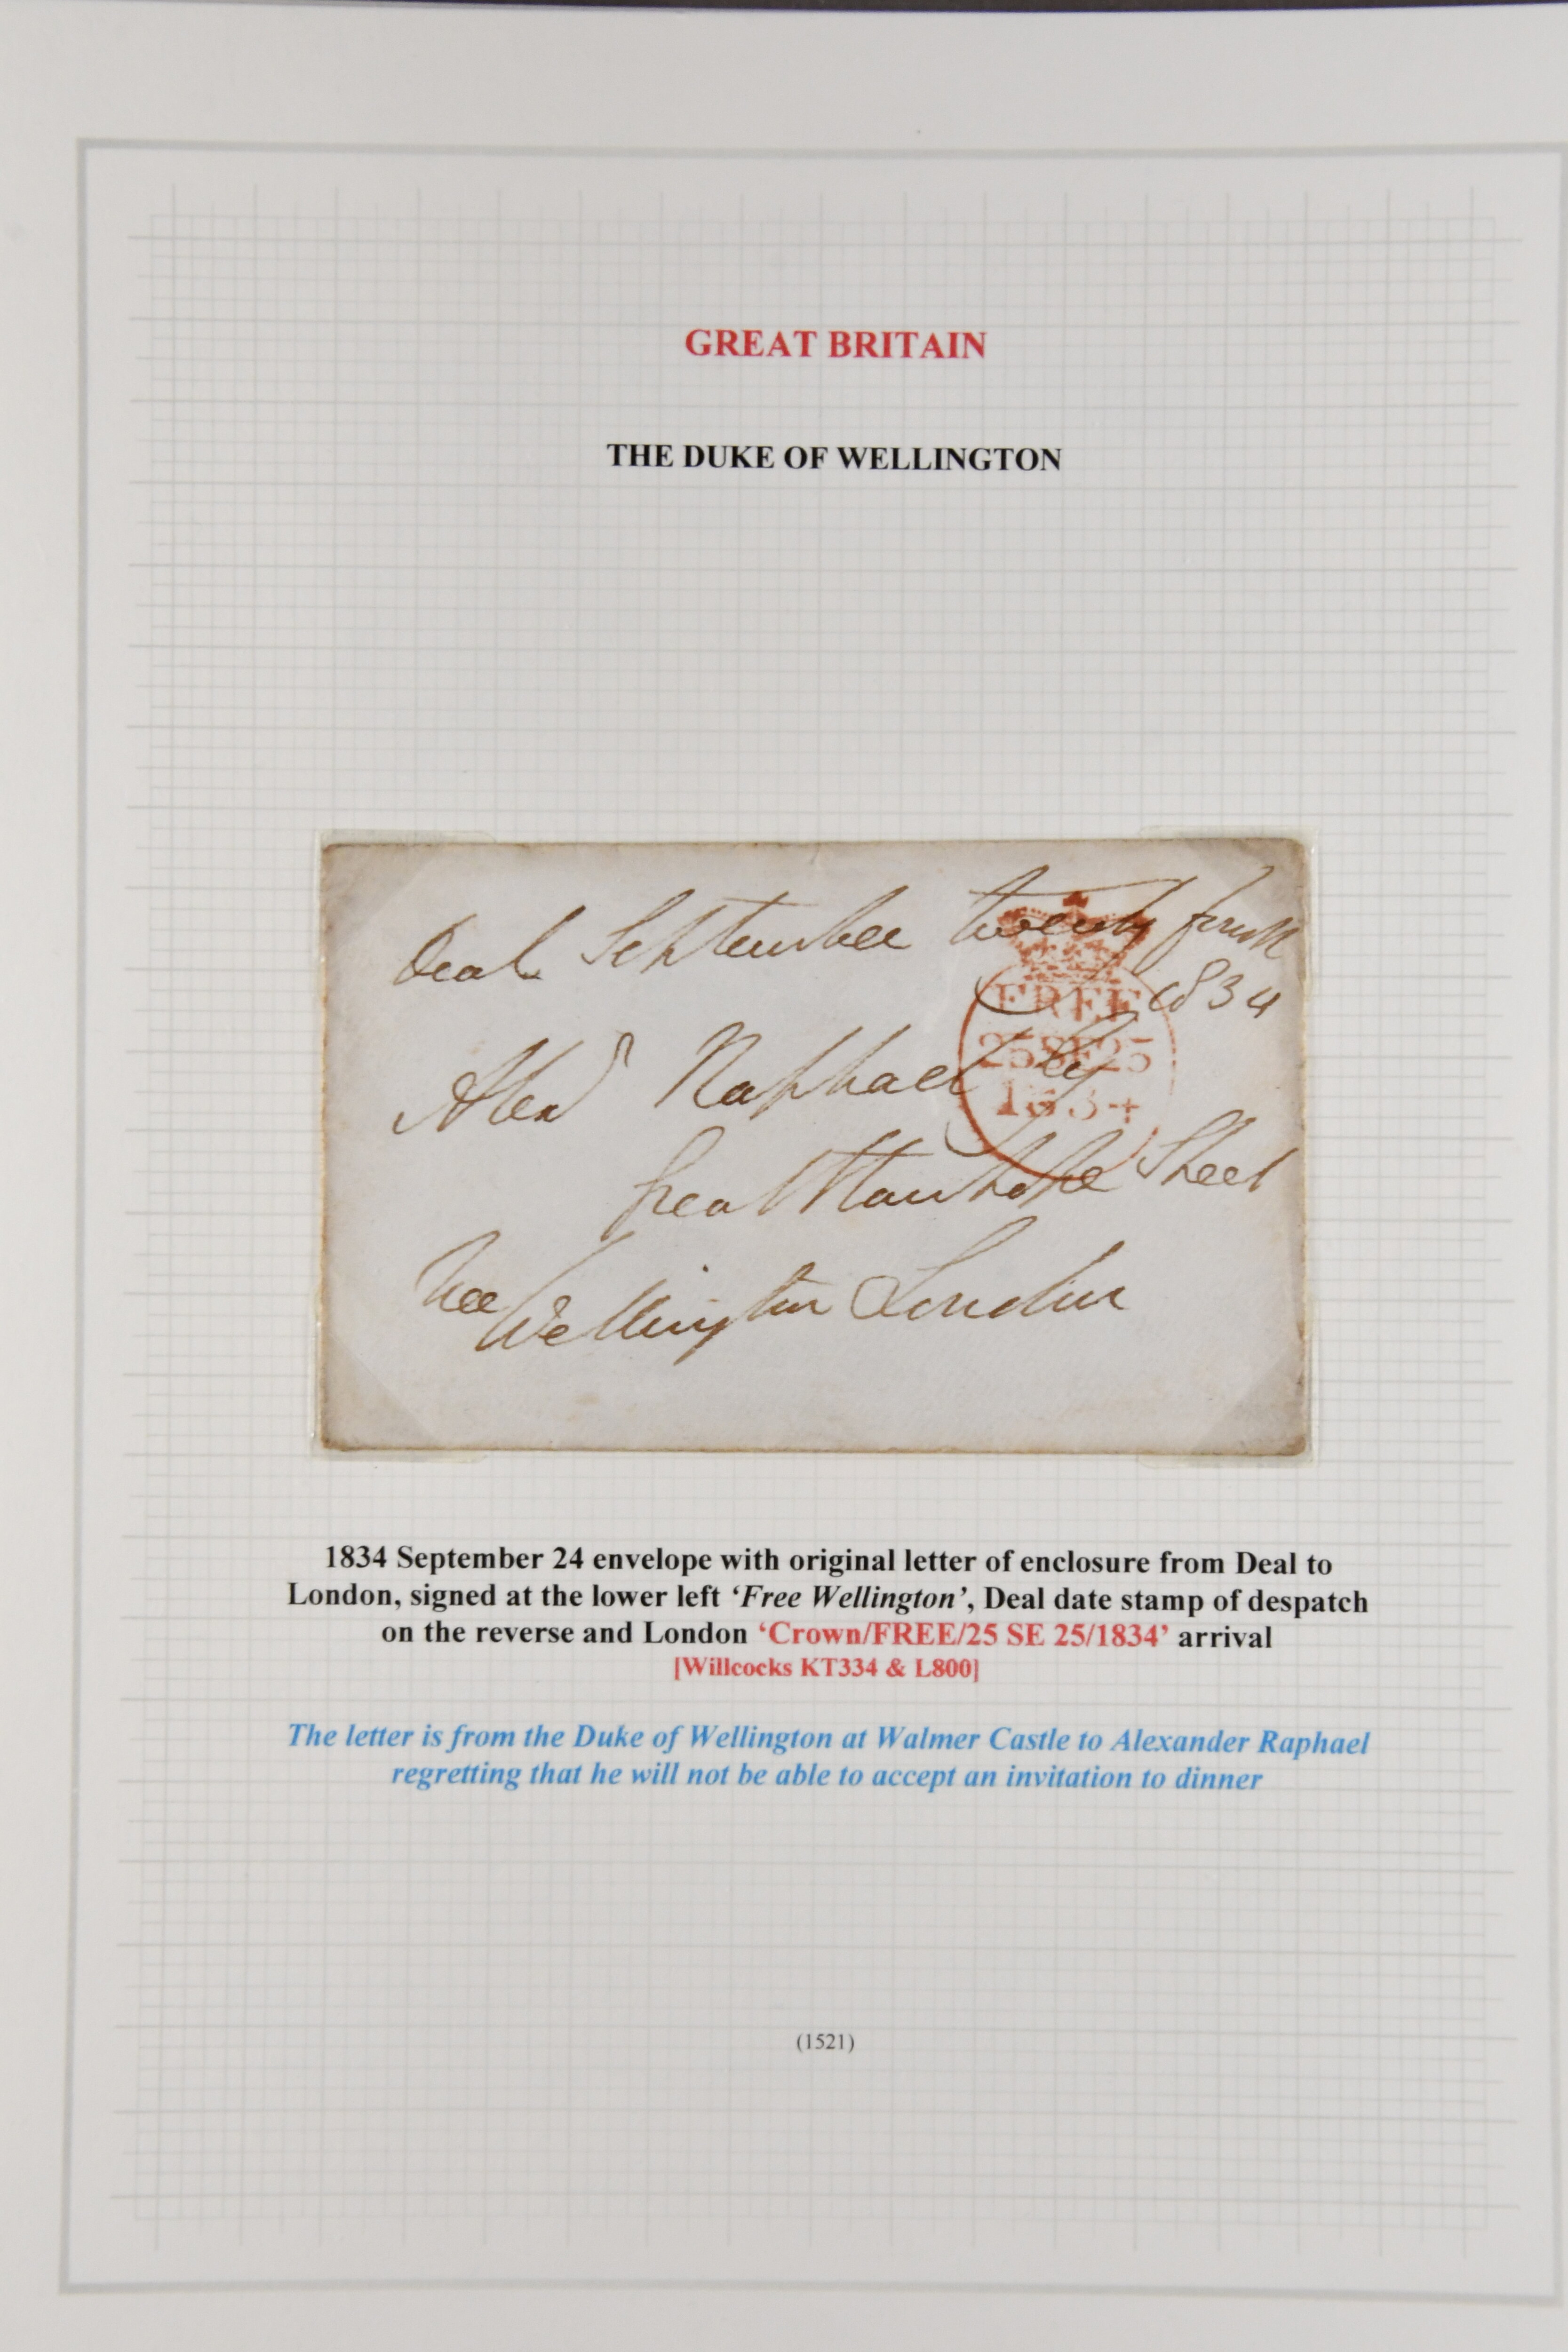 GREAT BRITAIN
THE DUKE OF WELLINGTON
Deal September twenty fourth
1834
FREE
25SE25
1834
Alexr Raphael Esq
Great Stanhope Street
Free
Wellington London
1834 September 24 envelope with original letter of enclosure from Deal to
London, signed at the lower left ‘Free Wellington’, Deal date stamp of despatch
on the reverse and London ‘Crown/FREE/25 SE 25/1834’ arrival
[Willcocks KT334 & L800]
The letter is from the Duke of Wellington at Walmer Castle to Alexander Raphael
regretting that he will not be able to accept an invitation to dinner
(1521)